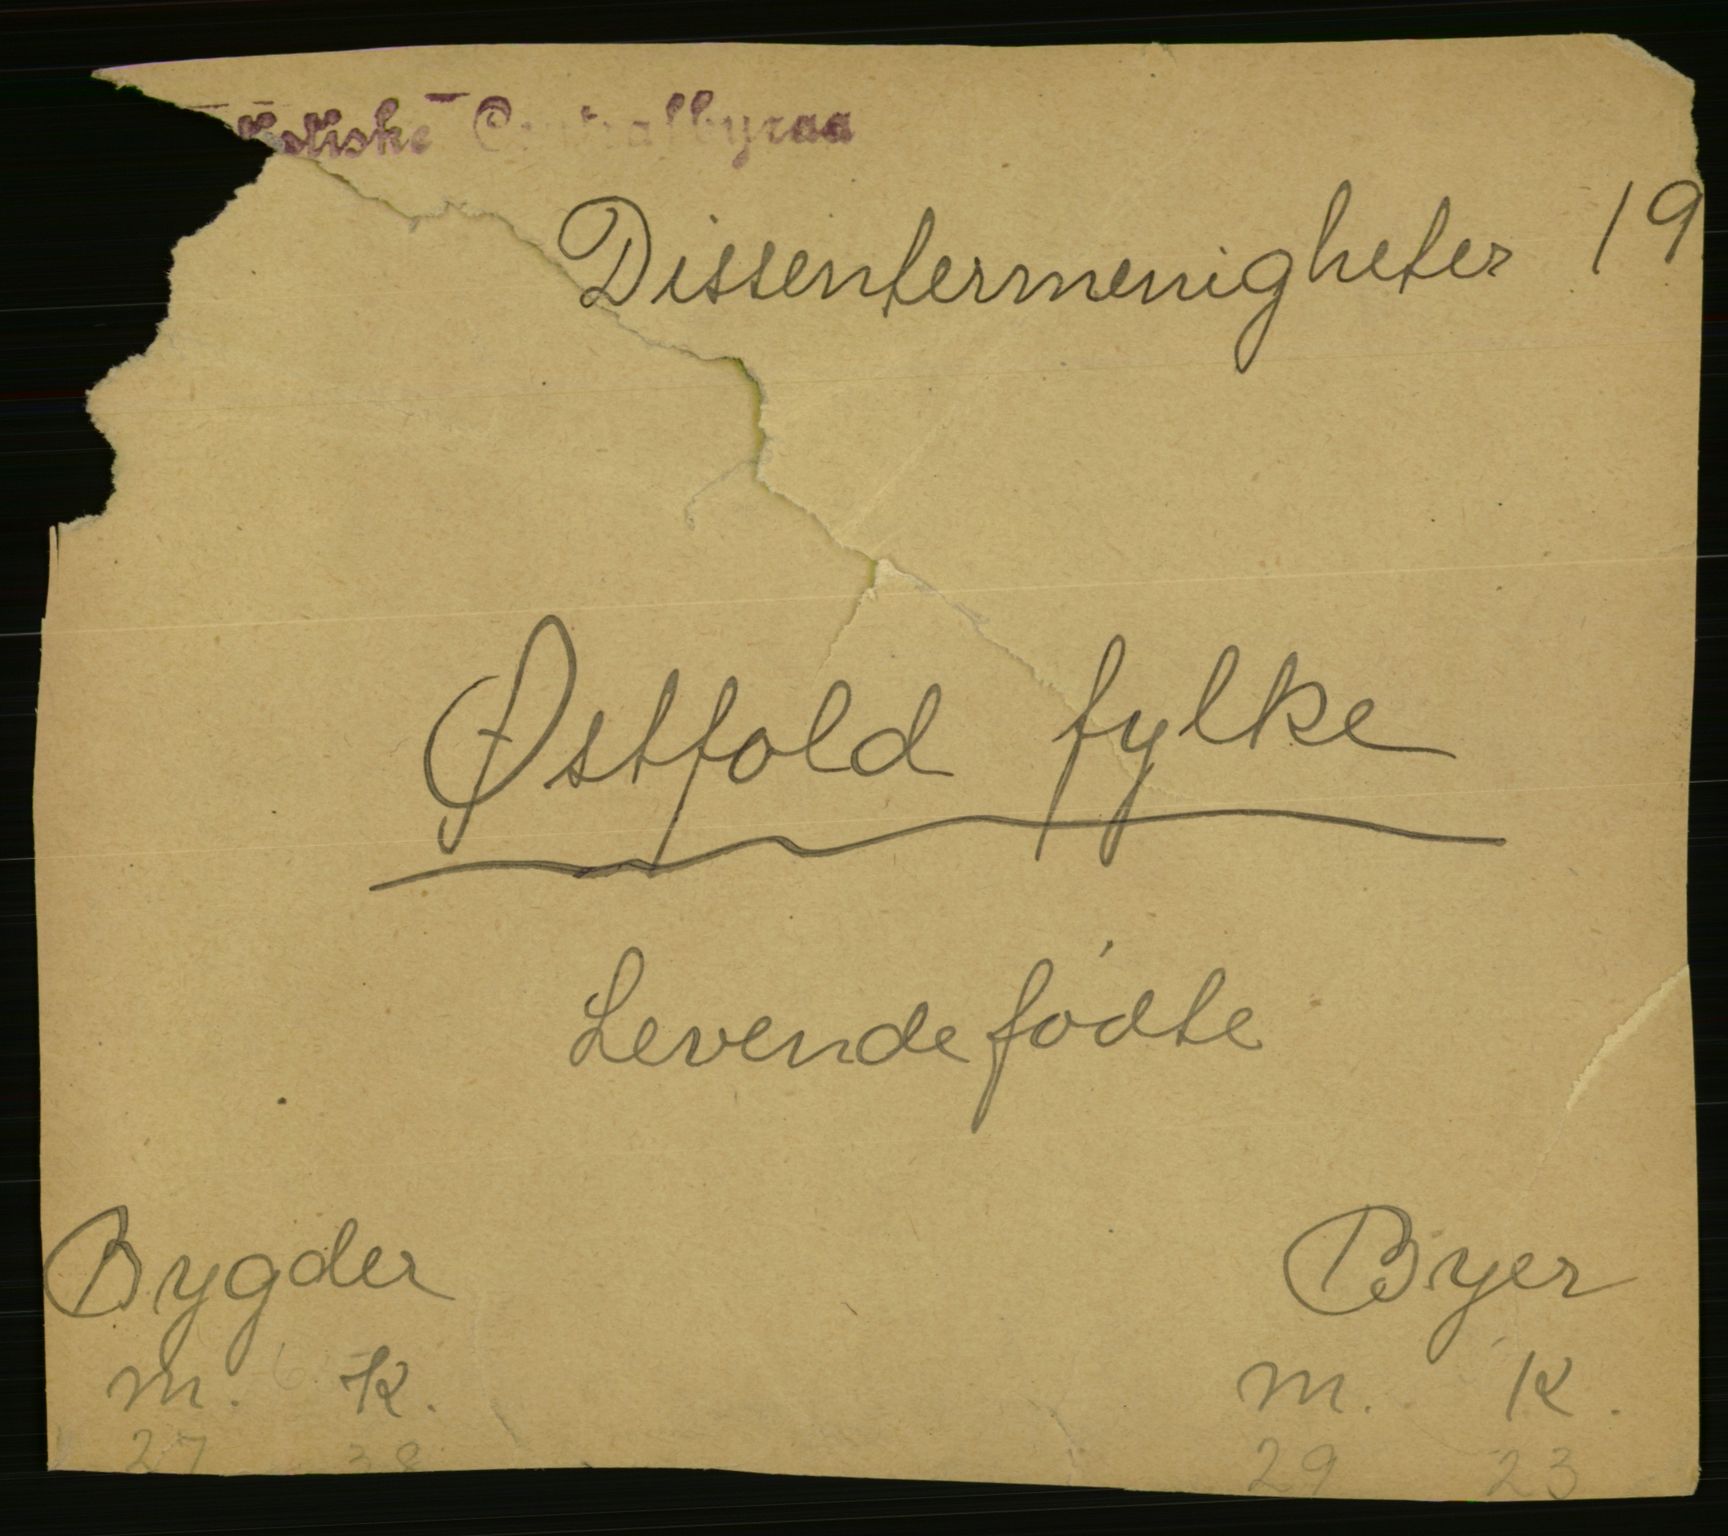 Centralbyraa
Dissentermenigheter 19
Østfold fylke
Levendefødte
Bygder Byer
m. k. m. k.
27 38 29 23